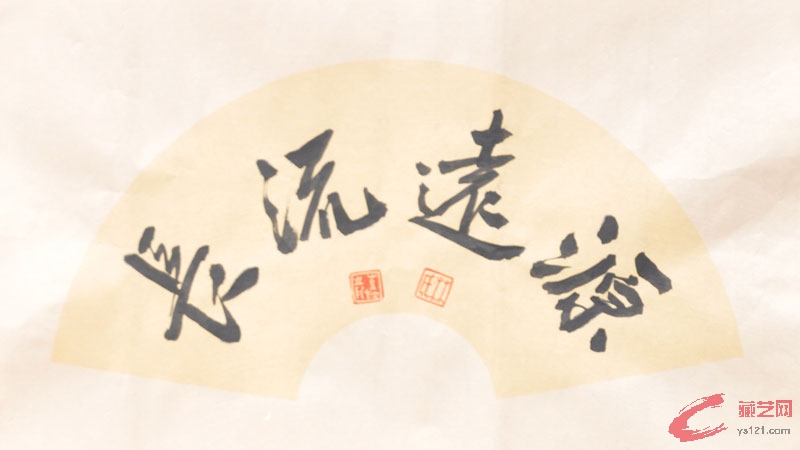 源遠流長
藏艺网
ys121.com